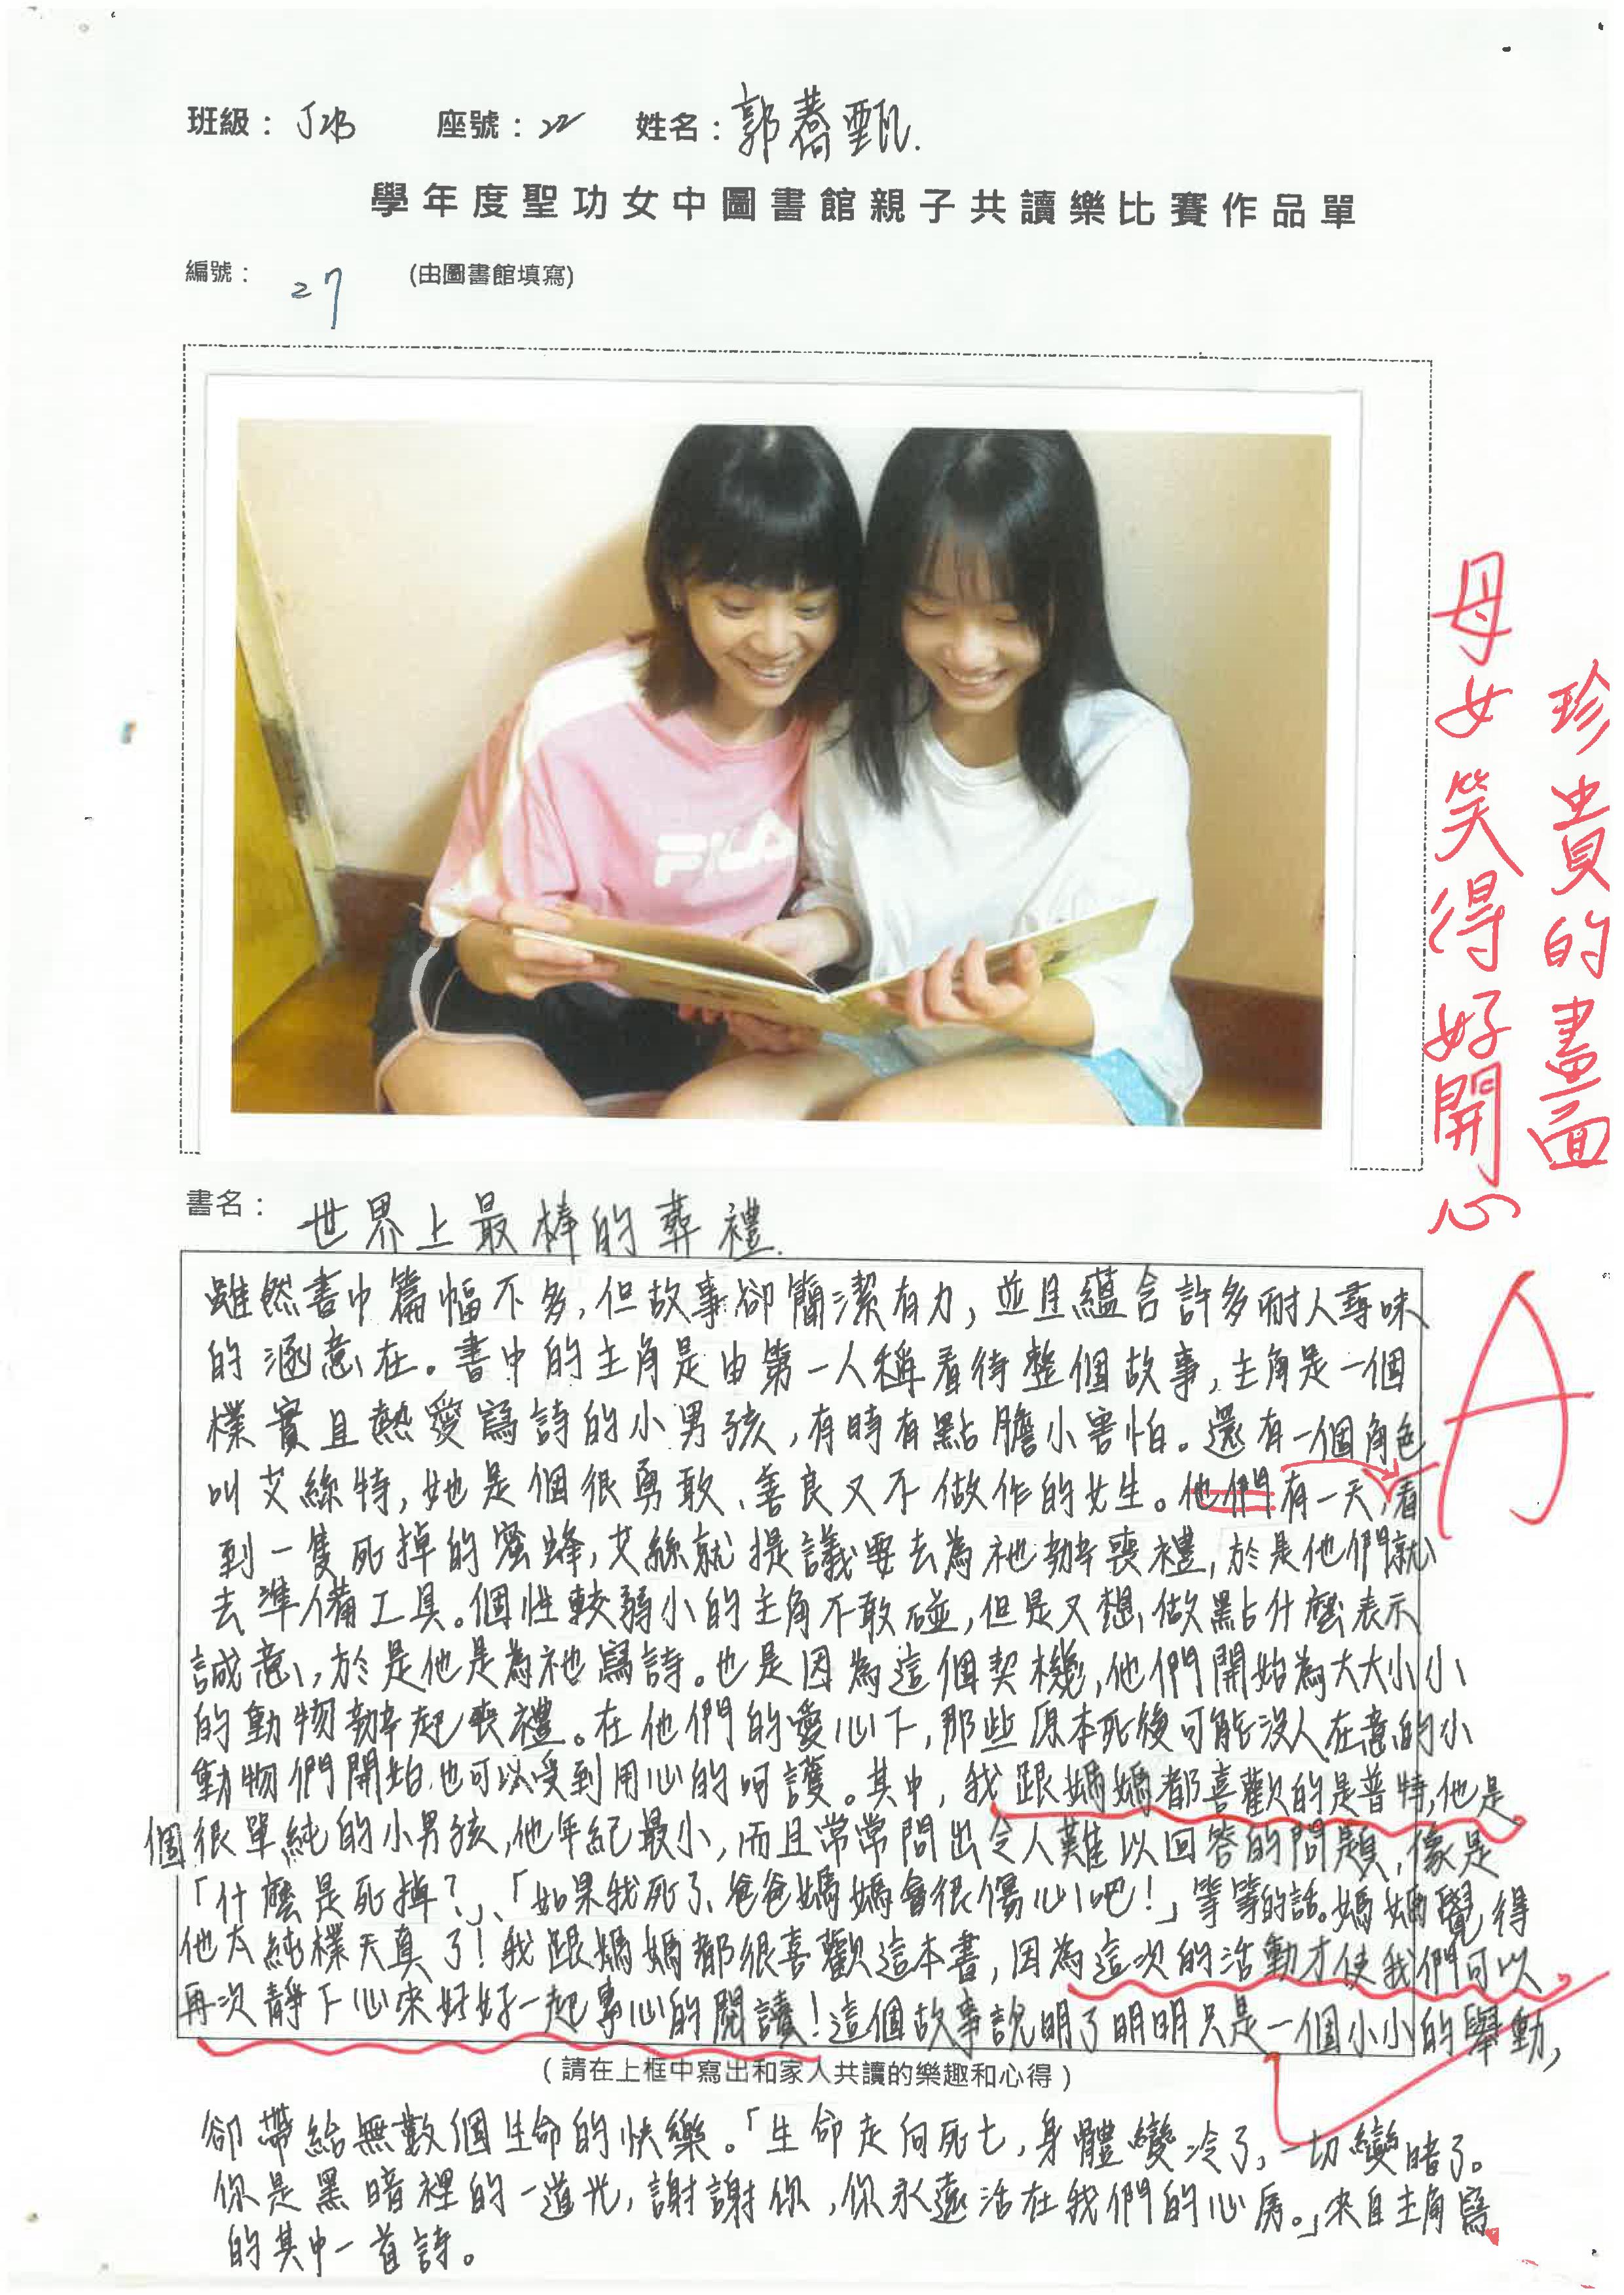 班級：J2B 座號：22 姓名：郭蕎甄.
學年度聖功女中圖書館親子共讀樂比賽作品單
編號： 27 (由圖書館填寫)
FILA
母女笑得好開心
珍貴的畫面
書名：世界上最棒的葬禮.
A
雖然書中篇幅不多，但故事卻簡潔有力，並且蘊含許多耐人尋味
的涵意在。書中的主角是由第一人稱看待整個故事，主角是一個
樸實且熱愛寫詩的小男孩，有時有點膽小害怕。還有一個角色
叫艾絲特，她是個很勇敢、善良又不做作的女生。他們有一天，看
到一隻死掉的蜜蜂，艾絲就提議要去為祂辦喪禮，於是他們就
去準備工具。個性較弱小的主角不敢碰，但是又想做點什麼表示
誠意，於是他是為祂寫詩。也是因為這個契機，他們開始為大大小小
的動物辦起喪禮。在他們的愛心下，那些原本死後可能沒人在意的小
動物們開始也可以受到用心的呵護。其中，我跟媽媽都喜歡的是普特，他是
個很單純的小男孩，他年紀最小，而且常常問出令人難以回答的問題，像是
「什麼是死掉？」、「如果我死了，爸爸媽媽會很傷心吧！」等等的話。媽媽覺得
他太純樸天真了！我跟媽媽都很喜歡這本書，因為這次的活動才使我們可以
再次靜下心來好好一起專心的閱讀！這個故事說明了明明只是一個小小的舉動，
（請在上框中寫出和家人共讀的樂趣和心得）
卻帶給無數個生命的快樂。「生命走向死亡，身體變冷了，一切變暗了。
你是黑暗裡的一道光，謝謝你，你永遠活在我們的心房。」來自主角寫
的其中一首詩。